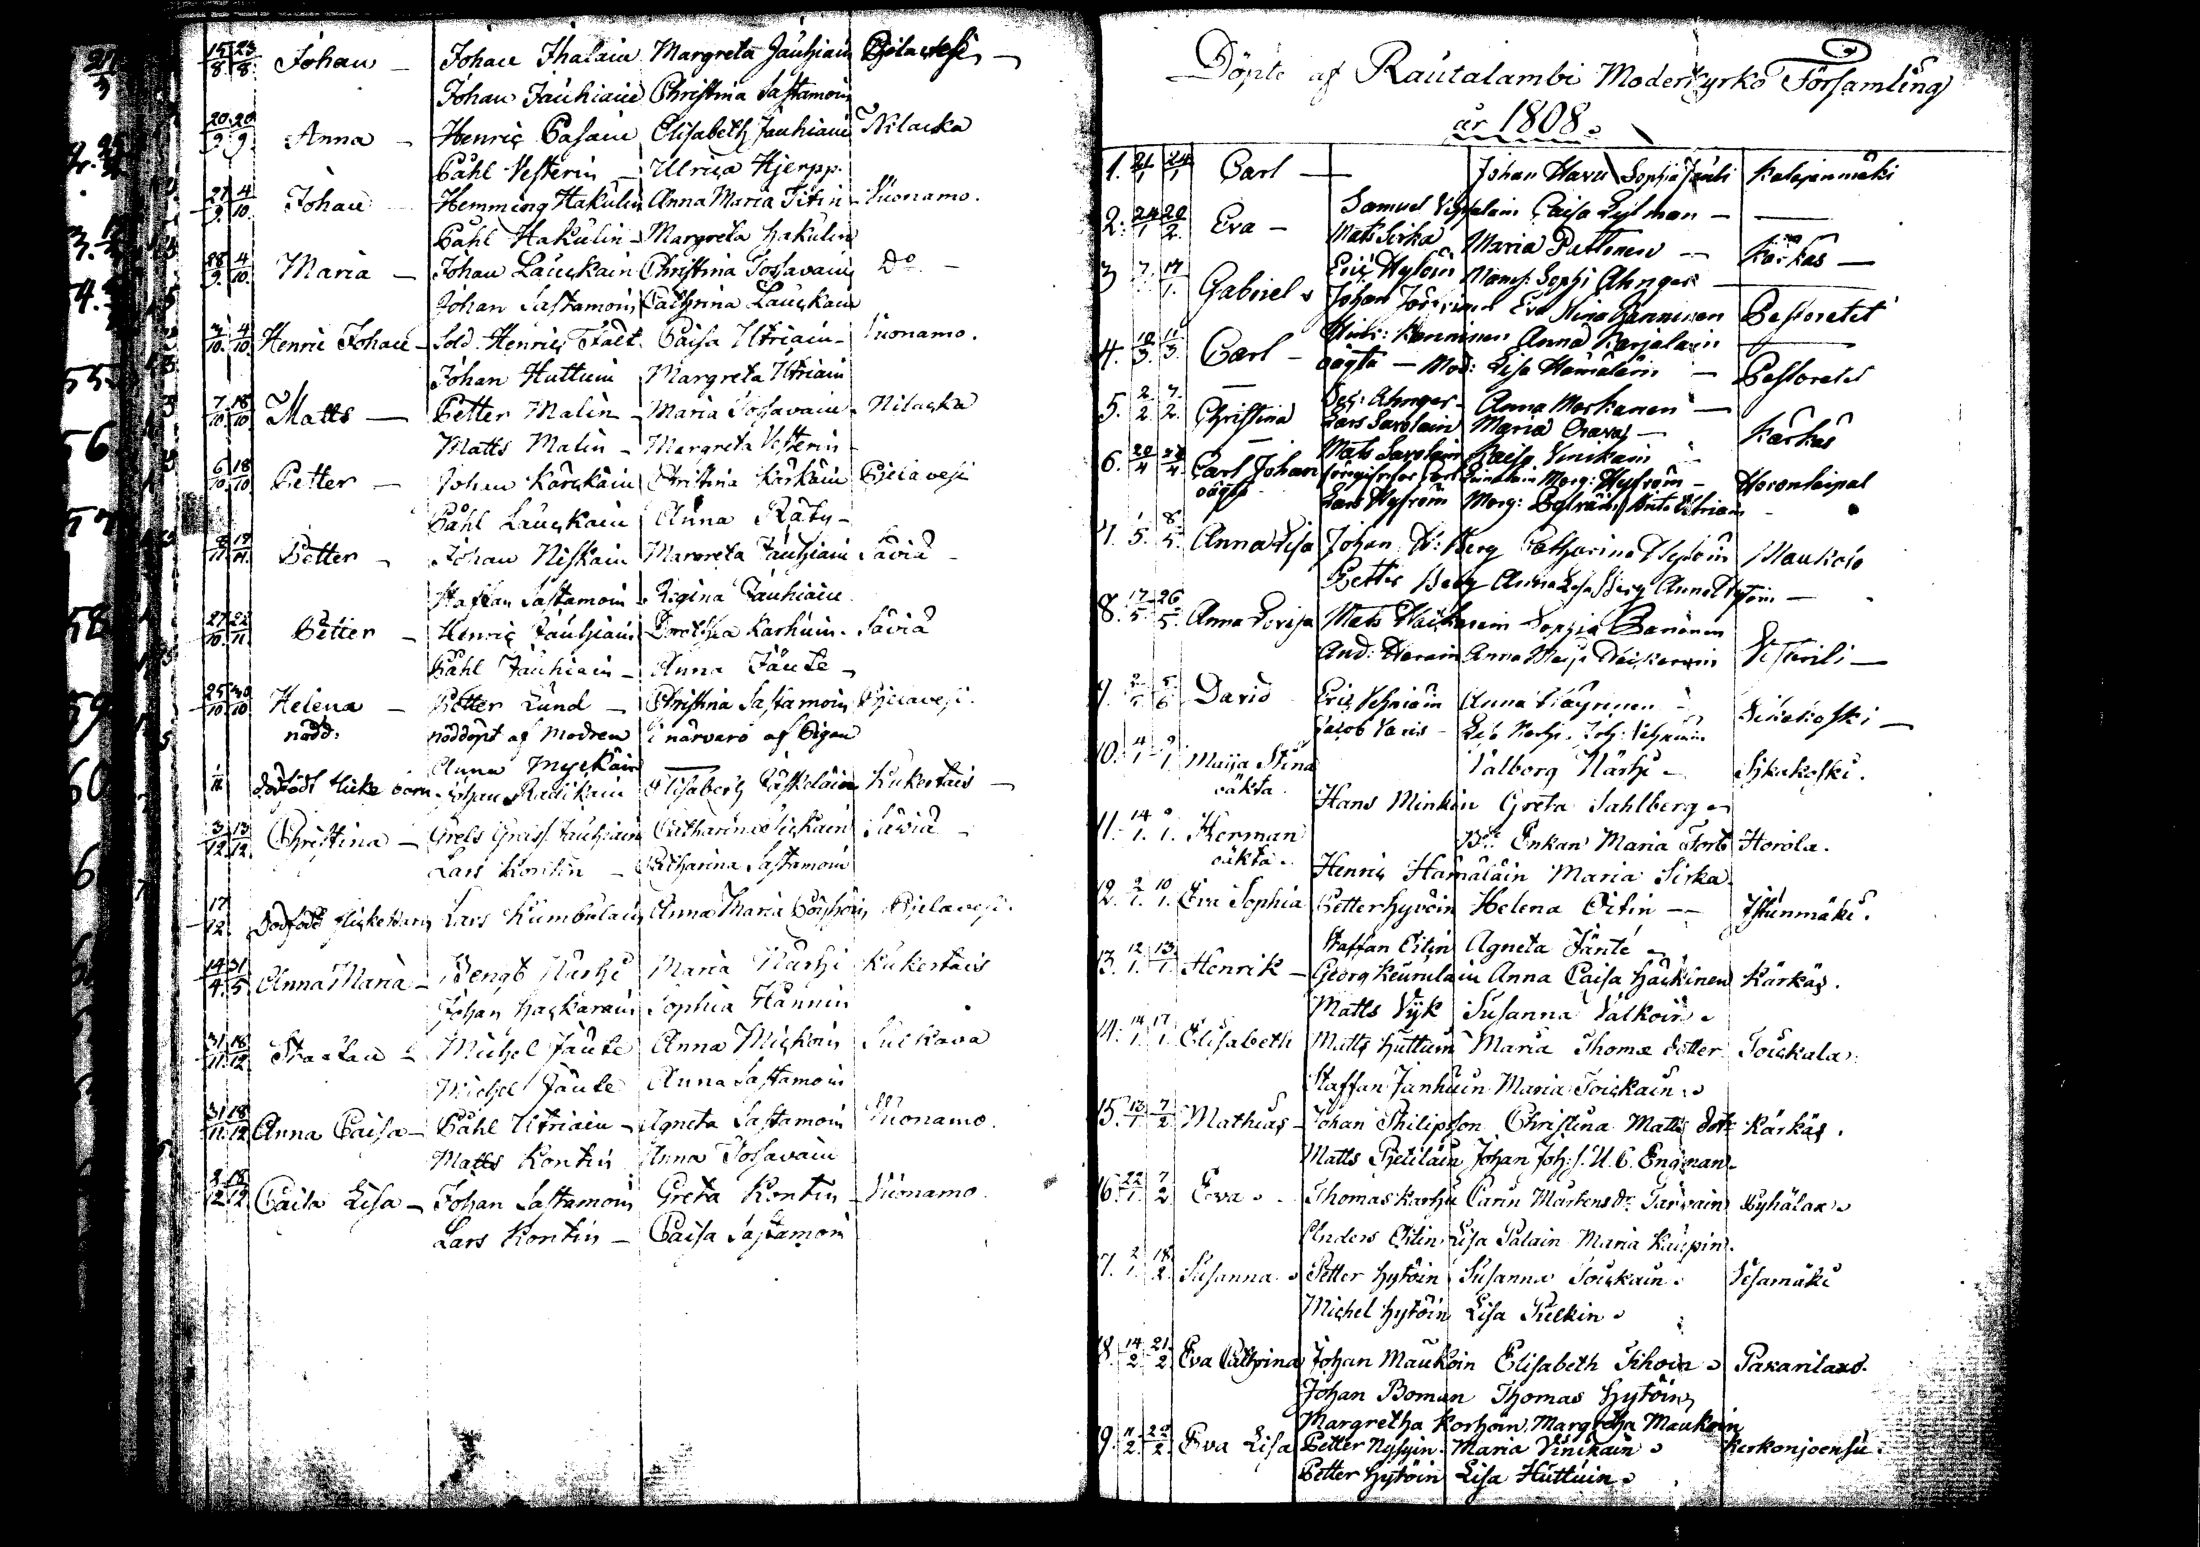 15/8 23/8 Johan — Johan Ihalain Margreta Jauhiain Pjelavesi —
Johan Jauhiain Christina Sastamoin
20/9 20/9 Anna — Henric Casain Elisabeth Jauhiain Nilacka
Påhl Vesterin — Ulrica Hjerpp.
27/9 4/10 Johan Hemming Hakulin Anna Maria Titin Vuonamo.
Påhl Hakulin — Margreta Hakulin
28/9 4/10 Maria — Johan Lauckain Christina Tossavain Do —
Johan Sastamoin Cathrina Lauckain
3/10 4/10 Henric Johan — Sold. Henric Fält Caisa Utriain — Vuonamo.
Johan Huttuin Margreta Utriain
7/10 18/10 Matts — Petter Malin — Maria Tossavain Nilacka
Matts Malin — Margreta Vesterin
6/10 18/10 Petter — Johan Kärckäin Christina Kärkäin Pjelavesi
Påhl Lauckain Anna Räty —
8/11 19/11 Petter — Johan Niskain Margreta Jauhiain Säviä —
Staffan Sastamoin Regina Jauhiain
27/10 22/11 Petter — Henric Jauhiain Dorothea Karhuin. Säviä
Påhl Jauhiain — Anna Jäute —
25/10 30/10 Helena — Petter Lund — Christina Sastamoin Pjelavesi.
nödd. nöddöpt af Modren i närvaro af Pigan
Anna Myckäin
1/11 dödfödt flicke barn Johan Radikain Elisabeth Läskeläin Kukertais —
3/12 13/12 Christina — Grels Jauhiain Catharina Lickain Säviä —
Lars Kontin — Catharina Sastamoin
17/12 Dödfödt flickebarn Lars Kumbulain Anna Maria Pöyhöin Pjelavesi.
14/4 31/5 Anna Maria — Bengt Närhi Maria Närhi Kukertais
Johan Hackarain Sophia Hännin
31/11 18/12 Staffan Michel Jäute Anna Mickoin Sulkava
Michel Jäute Anna Sastamoin
31/11 18/12 Anna Caisa — Påhl Utriain — Agneta Sastamoin Vuonamo.
Matts Kontin Anna Tossavain
2/12 18/12 Caisa Lisa — Johan Sastamoin Greta Kontin — Vuonamo.
Lars Kontin — Caisa Sastamoin
Döpte af Rautalambi Moderkyrko Församling
år 1808.
1. 21/1 24/1 Carl — Johan Havu Sophia Jäuti
Samuel Caisa Lylman —
2. 24/1 20/2 Eva — Mats Sirka Maria Puttonen — Kärkäs —
Eric Hytöin Mams: Sophi Ahnger
3 7 17/1 Gabriel Johan Eva Stina Janninen Pastoratet
Anna Karjalain
4. 10/3 11/3 Carl — oägta — Mod: Lisa Hämäläin — Pastoratet
Ahnger — Anna Markanen —
5. 2/2 7/2 Christina Lars Savolain Maria — Kärkäs
Mats Savolain Kaisa Vinikain
6. 20/4 24/4 Carl Johan Marg: Hytröm —
oägta Lars Hytröm Marg:
7. 1/5 8/5 Anna Lisa Johan Berg Catharina Hytöin Maukolo
Petter Berg Anna Lisa Berg Anna Hytöin —
8. 17/5 26/5 Anna Lovisa Mats Häckarain Sophia Vesterili —
And: Anna Maija Häckarain
9. 2/5 5/6 David Eric Vehniäin Anna Käyrinen — Sikakoski —
Jacob
10. 4/1 9/1 Maija Stina Valborg Närhi — Sjkakoski.
oäkta. Hans Minkin Greta Sahlberg
11. 14/1. 1. Herman Enkan Maria Horola.
oäkta. Henric Hämäläin Maria Sirka
12. 2/1. 10/1. Eva Sophia Petter Hyvöin Helena Oitin — Istunmäki.
Staffan Oitin Agneta Jänte
13. 12/1. 13/1. Henrik — Georg Keurulain Anna Caisa Häckinen Kärkäs.
Matts Vyk Susanna Valkoin
14. 14/1 17/1 Elisabeth Matts Huttuin Maria Thomæ dotter Toickala
Staffan Janhuin Maria Toickain
15. 13/1 7/2 Mathias Johan Philipson Christina Matts dotr Kärkäs.
Matts Petiläin Johan Joh: s. U. C. Engman
16. 22/1. 7/2 Eva. Thomas Karhu Carin Mårtens dr. Tarvain Pyhälax
Anders Oitin Lisa Palain Maria Kaupin.
17. 2/1. 18/2. Susanna Petter Hytöin Susanna Toickain. Vesamäki
Michel Hytöin Lisa Pulkin
18. 14/2 21/2 Eva Cathrina Johan Maukoin Elisabeth Tihoin Pakarilaxd.
Johan Boman Thomas Hytöin
Margretha Korhoin, Margretha Maukoin
19. 11/2. 22/2 Eva Lisa Petter Nyssyin Maria Vinikain Kerkonjoensu.
Petter Hytöin Lisa Huttuin